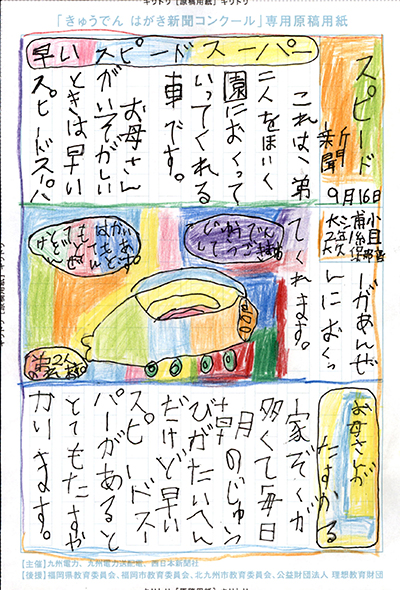 キリトリ【原稿用紙】キリトリ
「きゅうでん はがき新聞コンクール」専用原稿用紙
スピード
新聞
9月16日
早いスピードスーパー
これは、弟
二人をほいく
園におくって
いってくれる
車です。
お母さん
がいそがしい
ときは早い
スピードスパ
ーがあんぜ
んにおくっ
てくれます。
お母さんが
たすかる
家ぞくが
多くて毎日
朝のじゅん
びがたいへん
だけど早い
スピードスー
パーがあると
とてもたすか
ります。
【主催】九州電力、九州電力送配電、西日本新聞社
【後援】福岡県教育委員会、福岡市教育委員会、北九州市教育委員会、公益財団法人 理想教育財団
キリトリ【原稿用紙】キリトリ